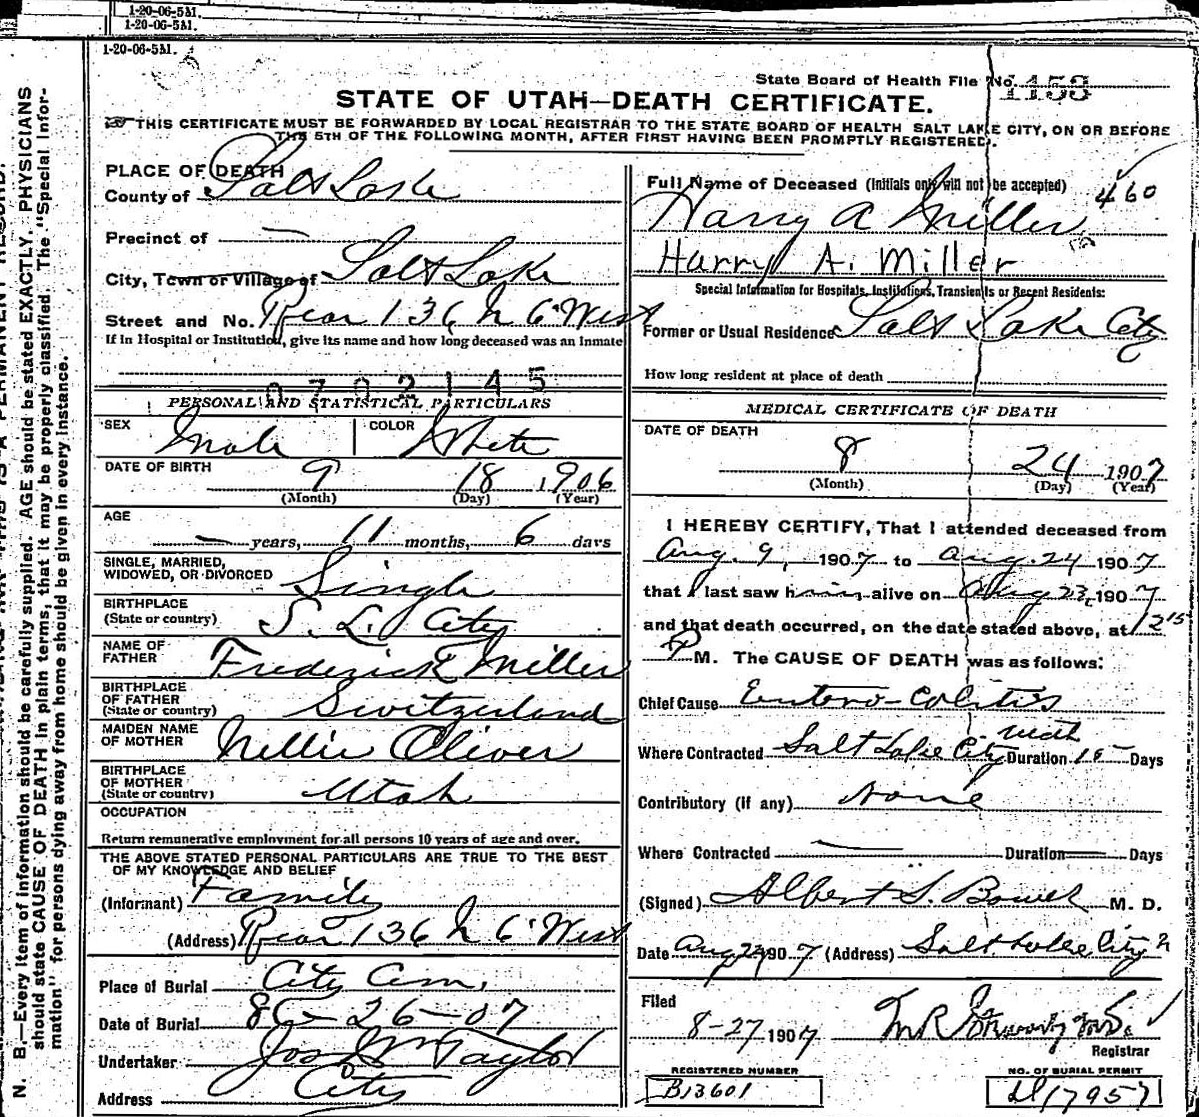 1-20-06-5M.
1-20-06-5M.
1-20-06-5M.
State Board of Health File No. 1153
STATE OF UTAH—DEATH CERTIFICATE.
THIS CERTIFICATE MUST BE FORWARDED BY LOCAL REGISTRAR TO THE STATE BOARD OF HEALTH SALT LAKE CITY, ON OR BEFORE
THE 5TH OF THE FOLLOWING MONTH, AFTER FIRST HAVING BEEN PROMPTLY REGISTERED.
N. B.—Every item of information should be carefully supplied. AGE should be stated EXACTLY. PHYSICIANS
should state CAUSE OF DEATH in plain terms, that it may be properly classified. The "Special Infor-
mation" for persons dying away from home should be given in every instance.
PLACE OF DEATH
County of Salt Lake
Precinct of —
City, Town or Village of Salt Lake
Street and No. Rear 136 N 6 West
If in Hospital or Institution, give its name and how long deceased was an inmate
0702145
PERSONAL AND STATISTICAL PARTICULARS
SEX Male COLOR White
DATE OF BIRTH 9 18 1906
(Month) (Day) (Year)
AGE
— years, 11 months, 6 days
SINGLE, MARRIED,
WIDOWED, OR DIVORCED Single
BIRTHPLACE
(State or country) S. L. City
NAME OF
FATHER Frederick Miller
BIRTHPLACE
OF FATHER
(State or country) Switzerland
MAIDEN NAME
OF MOTHER Nellie Oliver
BIRTHPLACE
OF MOTHER
(State or country) Utah
OCCUPATION
Return remunerative employment for all persons 10 years of age and over.
THE ABOVE STATED PERSONAL PARTICULARS ARE TRUE TO THE BEST
OF MY KNOWLEDGE AND BELIEF
(Informant) Family
(Address) Rear 136 N 6 West
Place of Burial City Cem.
Date of Burial 8-26-07
Undertaker Jos Wm Taylor
Address City
Full Name of Deceased (Initials only will not be accepted)
460
Harry A Miller
Harry A. Miller
Special Information for Hospitals, Institutions, Transients or Recent Residents:
Former or Usual Residence Salt Lake City
How long resident at place of death
MEDICAL CERTIFICATE OF DEATH
DATE OF DEATH
8 24 1907
(Month) (Day) (Year)
I HEREBY CERTIFY, That I attended deceased from
Aug. 9, 1907 to Aug. 24 1907
that I last saw him alive on Aug 23, 1907
and that death occurred, on the date stated above, at 12 15
P M. The CAUSE OF DEATH was as follows:
Chief Cause Entero-Colitis
Where Contracted Salt Lake City Utah Duration 15 Days
Contributory (If any) None
Where Contracted — Duration — Days
(Signed) Albert S. Bower M. D.
Date Aug 1907 (Address) Salt Lake City
Filed
8-27 1907
Registrar
REGISTERED NUMBER
B13601
NO. OF BURIAL PERMIT
17957